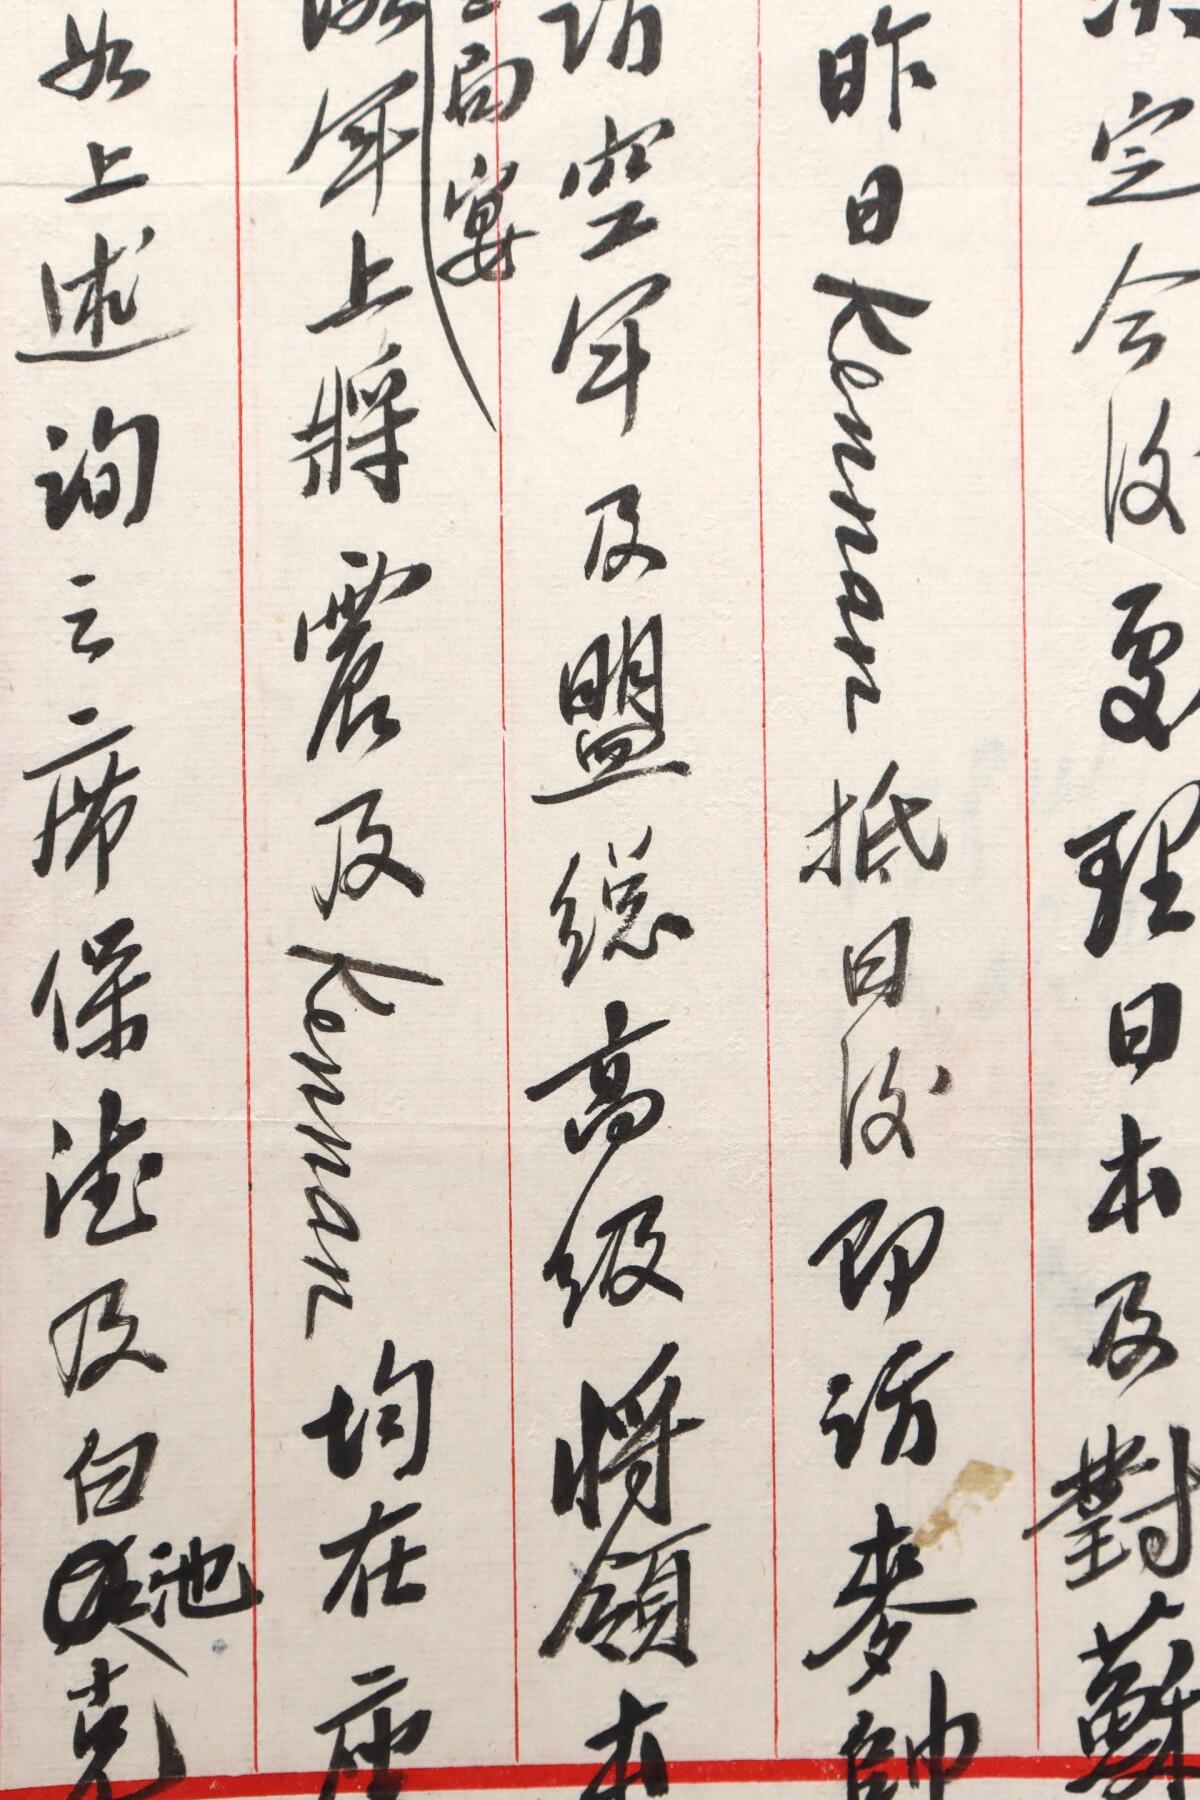 定今後處理日本及對蘇
昨日Kennan抵日後即訪麥帥
訪空军及盟総高级將領本
局宴
年上將震及Kennan均在座
如上述詢之席保德及白池克